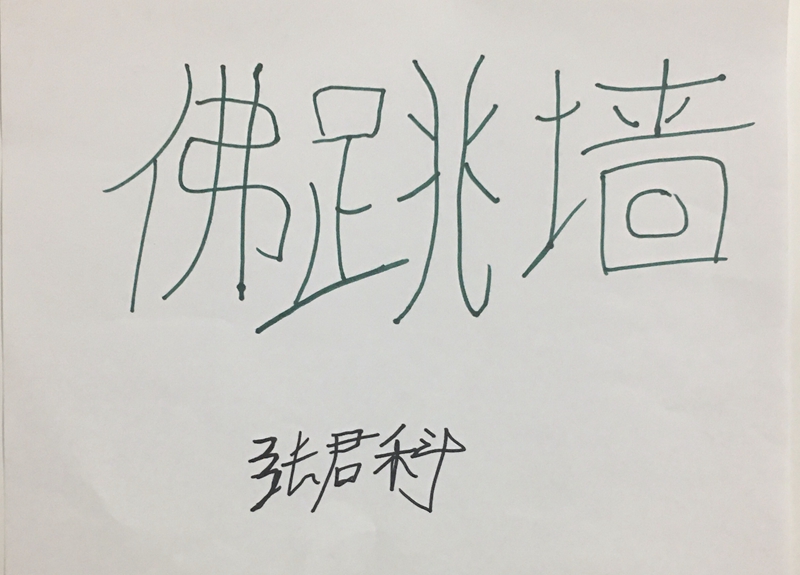 佛跳墙
张君科